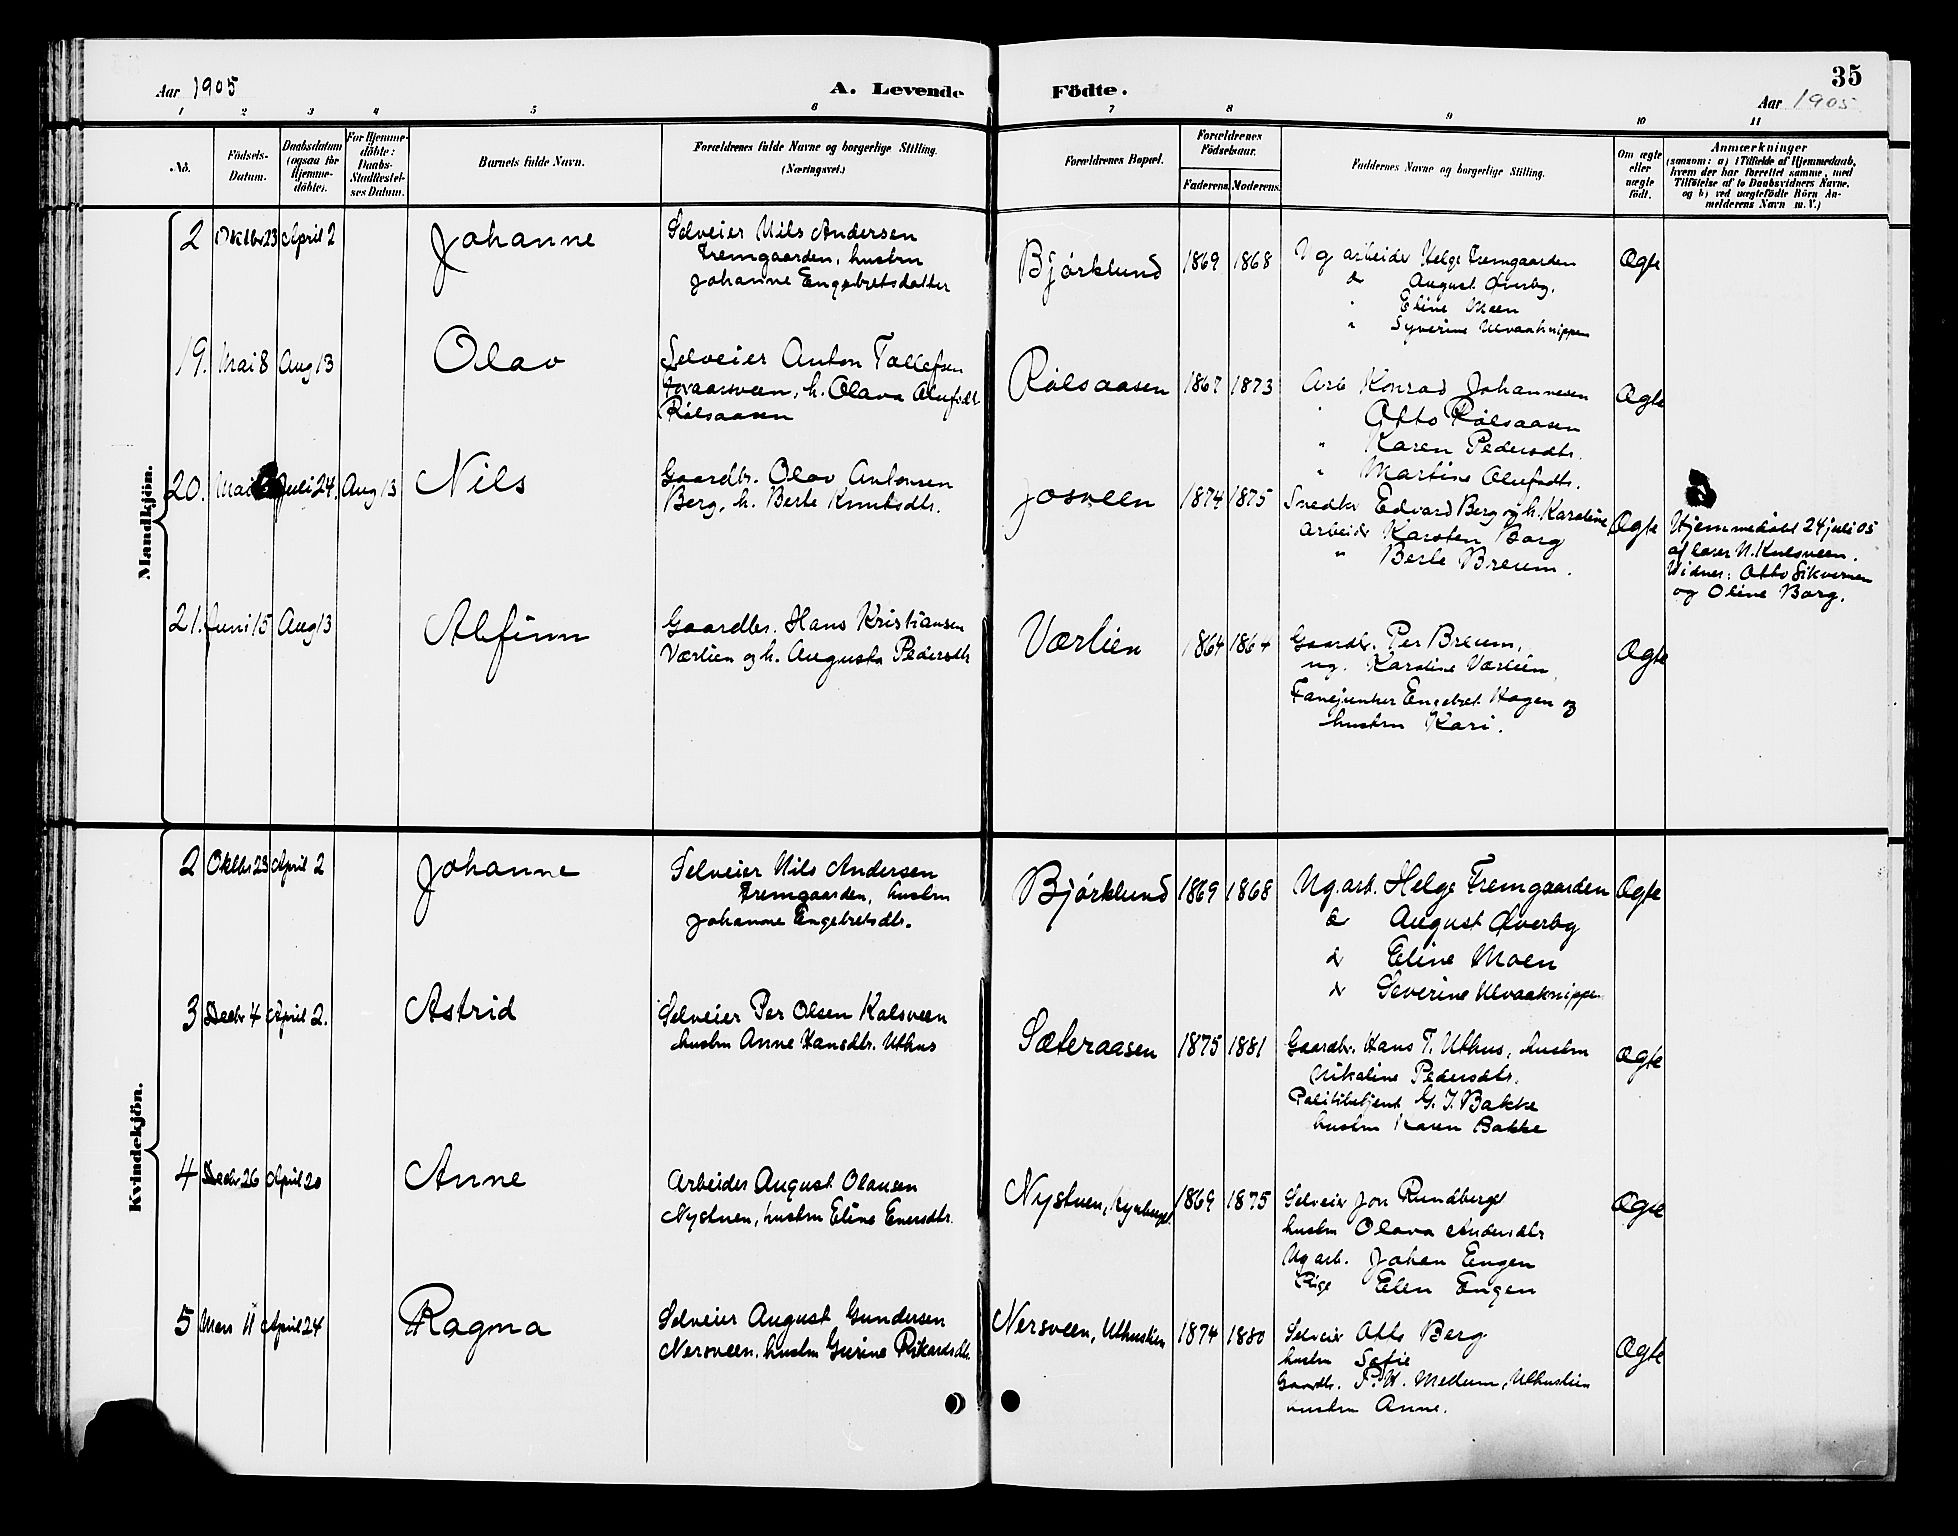 35
Aar 1905
A. Levende
Födte.
Aar 1905
1 2 3 4 5 6 7 8 9 10 11
No.
Födsels-
Datum.
Daabsdatum
(ogsaa for
Hjemme-
döbte).
For Hjemme-
döbte:
Daabs-
Stadfæstel-
ses Datum.
Barnets fulde Navn.
Forældrenes fulde Navne og borgerlige Stilling.
(Næringsvei.)
Forældrenes Bopæl.
Forældrenes
Födselsaar.
Faderens. Moderens.
Faddernes Navne og borgerlige Stilling.
Om ægte
eller
uægte
födt.
Anmærkninger
(saasom: a) i Tilfælde af Hjemmedaab,
hvem der har forrettet samme, med
Tilföielse af to Daabsvidners Navne,
og b) ved uægtefödte Börn An-
melderens Navn m. V.)
Mandkjön.
2 Oktbr 23 April 2
Johanne
Selveier Nils Andersen
Fremgaarden, hustru
Johanne Engebretsdatter
Bjørklund
1869 1868
Ug arbeider Helge Fremgaarden
do August Øverby.
" Eline Moen
" Syverine Ulvaaknippen
Ægte
19. Mai 8 Aug 13
Olav
Selveier Anton Tollefsen
h. Olava Olufsdt.
Rølsaasen
Rølsaasen
1867 1873
Arb Konrad Johannesen
" Otto Rølsaasen
" Karen Pedersdtr.
" Martine Olufsdtr.
Ægte
20. Mai Juli 24. Aug 13
Nils
Gaardbr. Olav Antonsen
Berg, h. Berte Knutsdtr.
Josveen
1874 1875
Snedker Edvard Berg og h. Karoline
Arbeider Karsten Borg
" Berte Breum.
Ægte
Hjemmedøbt 24 juli 05
af lærer N. Kulsveen.
Vidner: Otto Sikverien
og Oline Borg.
21. Juni 15 Aug 13
Alfinn
Gaardbr. Hans Kristiansen
Værlien og h. Augusta Pedersdtr
Værlien
1864 1864
Gaardbr. Per Breum,
ug. Karoline Værlien,
Fanejunker Engebret Hagen og
hustru Kari.
Ægte
Kvindekjön.
2 Oktbr 23 April 2
Johanne
Selveier Nils Andersen
Fremgaarden, hustru
Johanne Engebretsdtr.
Bjørklund
1869 1868
Ug. arb. Helge Fremgaarden
do August Øverby
do Eline Moen
do Severine Ulvaaknippen
Ægte
3 Decbr 4 April 2.
Astrid
Selveier Per Olsen Kolsveen
hustru Anne Hansdtr. Uthus
Sæteraasen
1875 1881
Gaardbr. Hans T. Uthus, hustru
Nikoline Pedersdtr.
Politibetjent G. J. Bakke
hustru Karen Bakke
Ægte
4 Decbr 26 April 20
Anne
Arbeider August Olausen
Nystuen, hustru Eline Enersdtr.
Nystuen,
1869 1875
Selveier Jon Rundberget
hustru Olava Andersdtr
Ug arb. Johan Engen
Pige Elen Engen
Ægte
5 Mars 11 April 24
Ragna
Selveier August Gundersen
Nersveen, hustru Gurine Rikardsdtr.
Nersveen, Uthuslien
1874 1880
Selveier Otto Berg
hustru Sofie
Gaardbr. P. H. Mellum, Uthuslien
hustru Anne.
Ægte